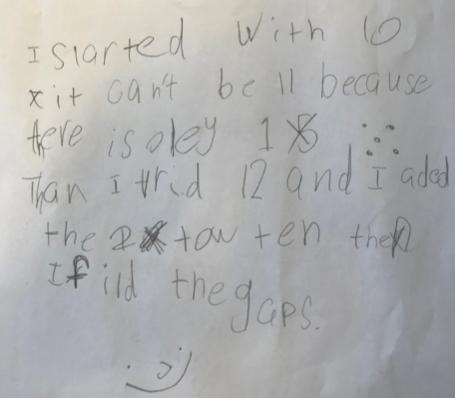 I started with 10
x it can't be 11 because
there is oley 1 5
Than I trid 12 and I aded
the 2 tow ten then
I fild the gaps.